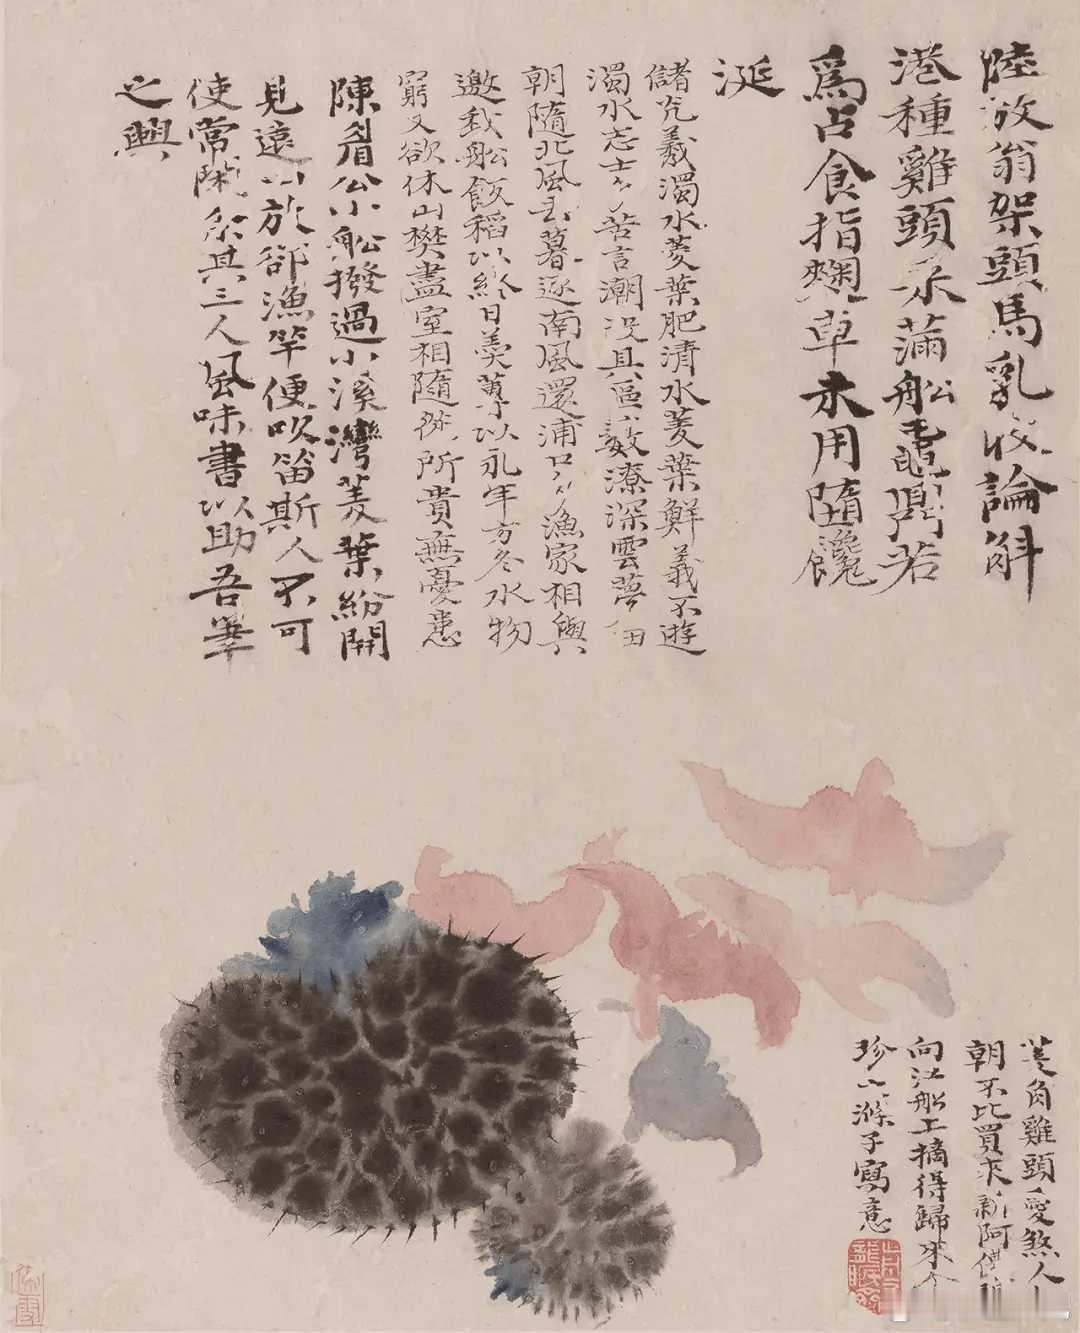 陸放翁架頭馬乳收論斛
港種雞頭采滿船黿鼎若
爲占食指麴車未用墮饞
涎
儲光羲濁水菱葉肥清水菱葉鮮義不游
濁水志士多苦言潮沒具區藪潦深雲夢田
朝隨北風去暮逐南風還浦口多漁家相與
邀我船飯稻以終日羹蓴以永年方冬水物
窮又欲休山樊盡室相隨從所貴無憂患
陳眉公小船撥過小溪灣菱葉紛開
見遠山放卻漁竿便吹笛斯人不可
使常閑余其三人風味書以助吾筆
之興
菱角雞頭愛煞人
朝不比買來新阿儂
向江船上摘得歸來
珍小滌子寫意